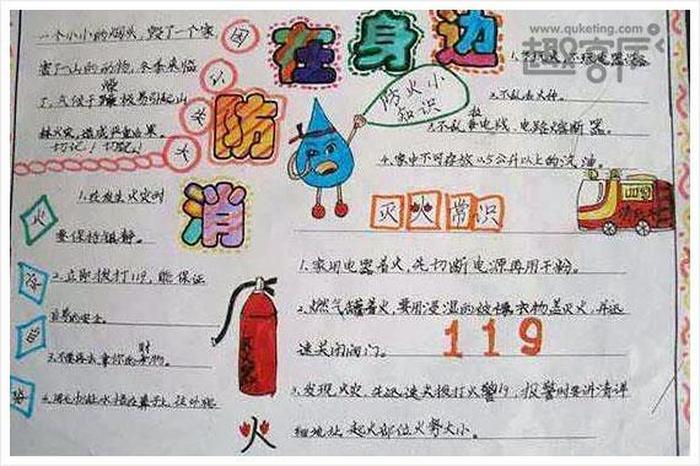 www.quketing.com
趣客厅
消防在身边
一个小小的烟头，毁了一个家，
害了一山的动物，冬季来临
了，气候干燥极易引起山
林火灾，造成严重后果。
切记！切记！
防火小
知识
2.不乱丢火种。
3.不乱接电线，电路须熔断器。
4.家中不可存放0.5公升以上的汽油。
1.在发生火灾时
要保持镇静。
2.立即拨打119，能保证
自己的安全。
3.不要再去拿你的财物。
灭火常识
1.家用电器着火，先切断电源再用干粉。
2.燃气罐着火，要用浸湿的被褥衣物盖灭火，并迅
速关闭阀门。
119
3.发现火灾，迅速拨打火警119，报警时要讲清详
细地址 起火部位 火势大小。
火